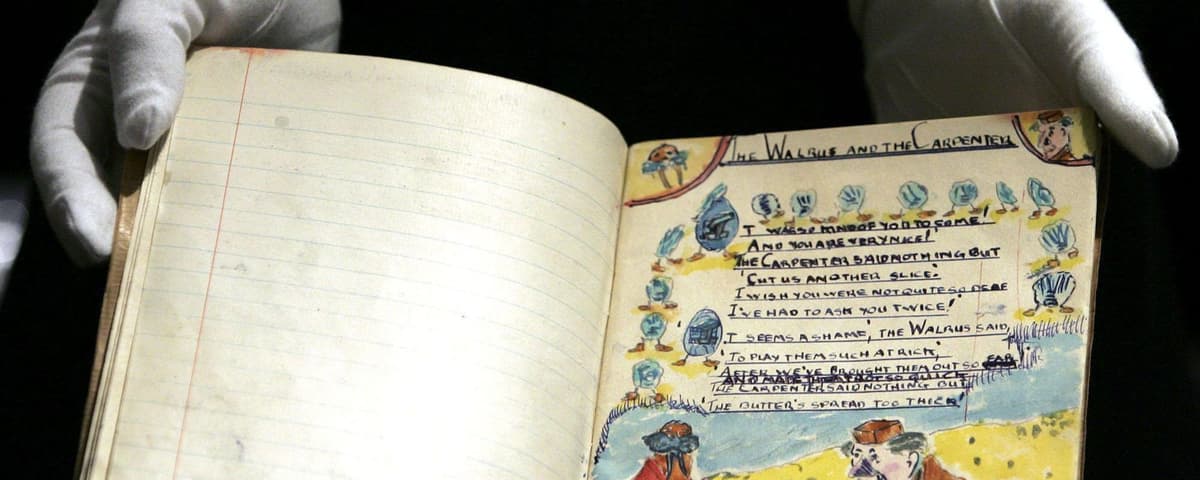 THE WALRUS AND THE CARPENTER
IT WAS SO KIND OF YOU TO COME!
AND YOU ARE VERY NICE!'
THE CARPENTER SAID NOTHING BUT
'CUT US ANOTHER SLICE:
I WISH YOU WERE NOT QUITE SO DEAF
I'VE HAD TO ASK YOU TWICE!'
IT SEEMS A SHAME', THE WALRUS SAID,
'TO PLAY THEM SUCH A TRICK,
AFTER WE'VE BROUGHT THEM OUT SO FAR
AND MADE THEM TROT SO QUICK
THE CARPENTER SAID NOTHING BUT
'THE BUTTER'S SPREAD TOO THICK!'